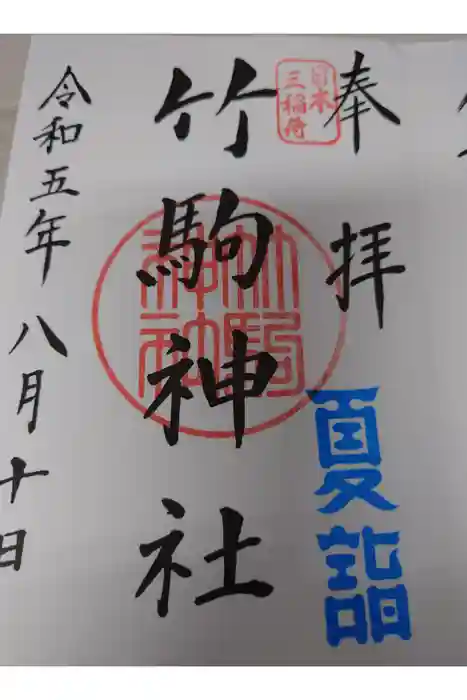 奉拝
夏詣
日本
三稲荷
竹駒神社
竹駒
神社
令和五年八月十日